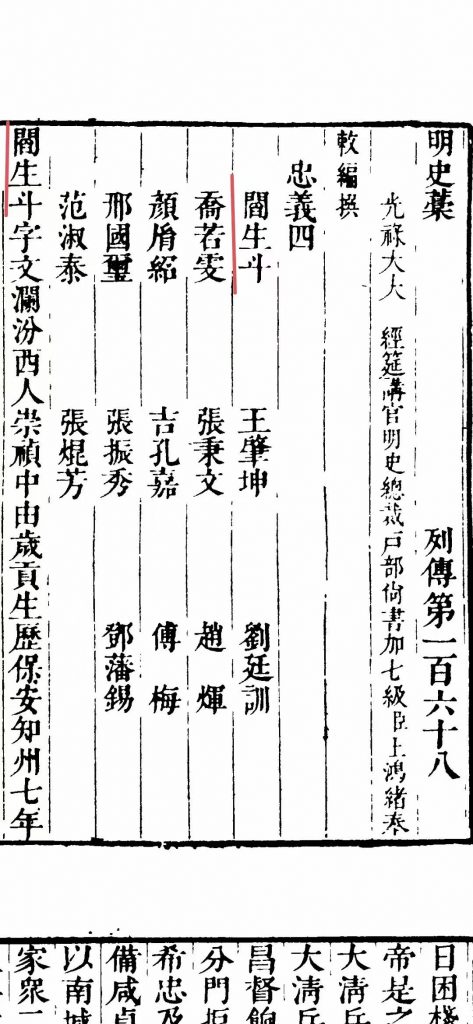 明史藁 列傳第一百六十八
光祿大夫 經筵講官明史總裁戶部尙書加七級臣王鴻緒奉
敕編撰
忠義四
閻生斗 王肇坤 劉廷訓
喬若雯 張秉文 趙煇
顏胤紹 吉孔嘉 傅梅
邢國璽 張振秀 鄧藩錫
范淑泰 張焜芳
閻生斗字文瀾汾西人崇禎中由歲貢生歷保安知州七年
日困
帝是之
大清兵
大清兵
昌督餉
分門拒
希忠及
備咸貞
以南城
家衆